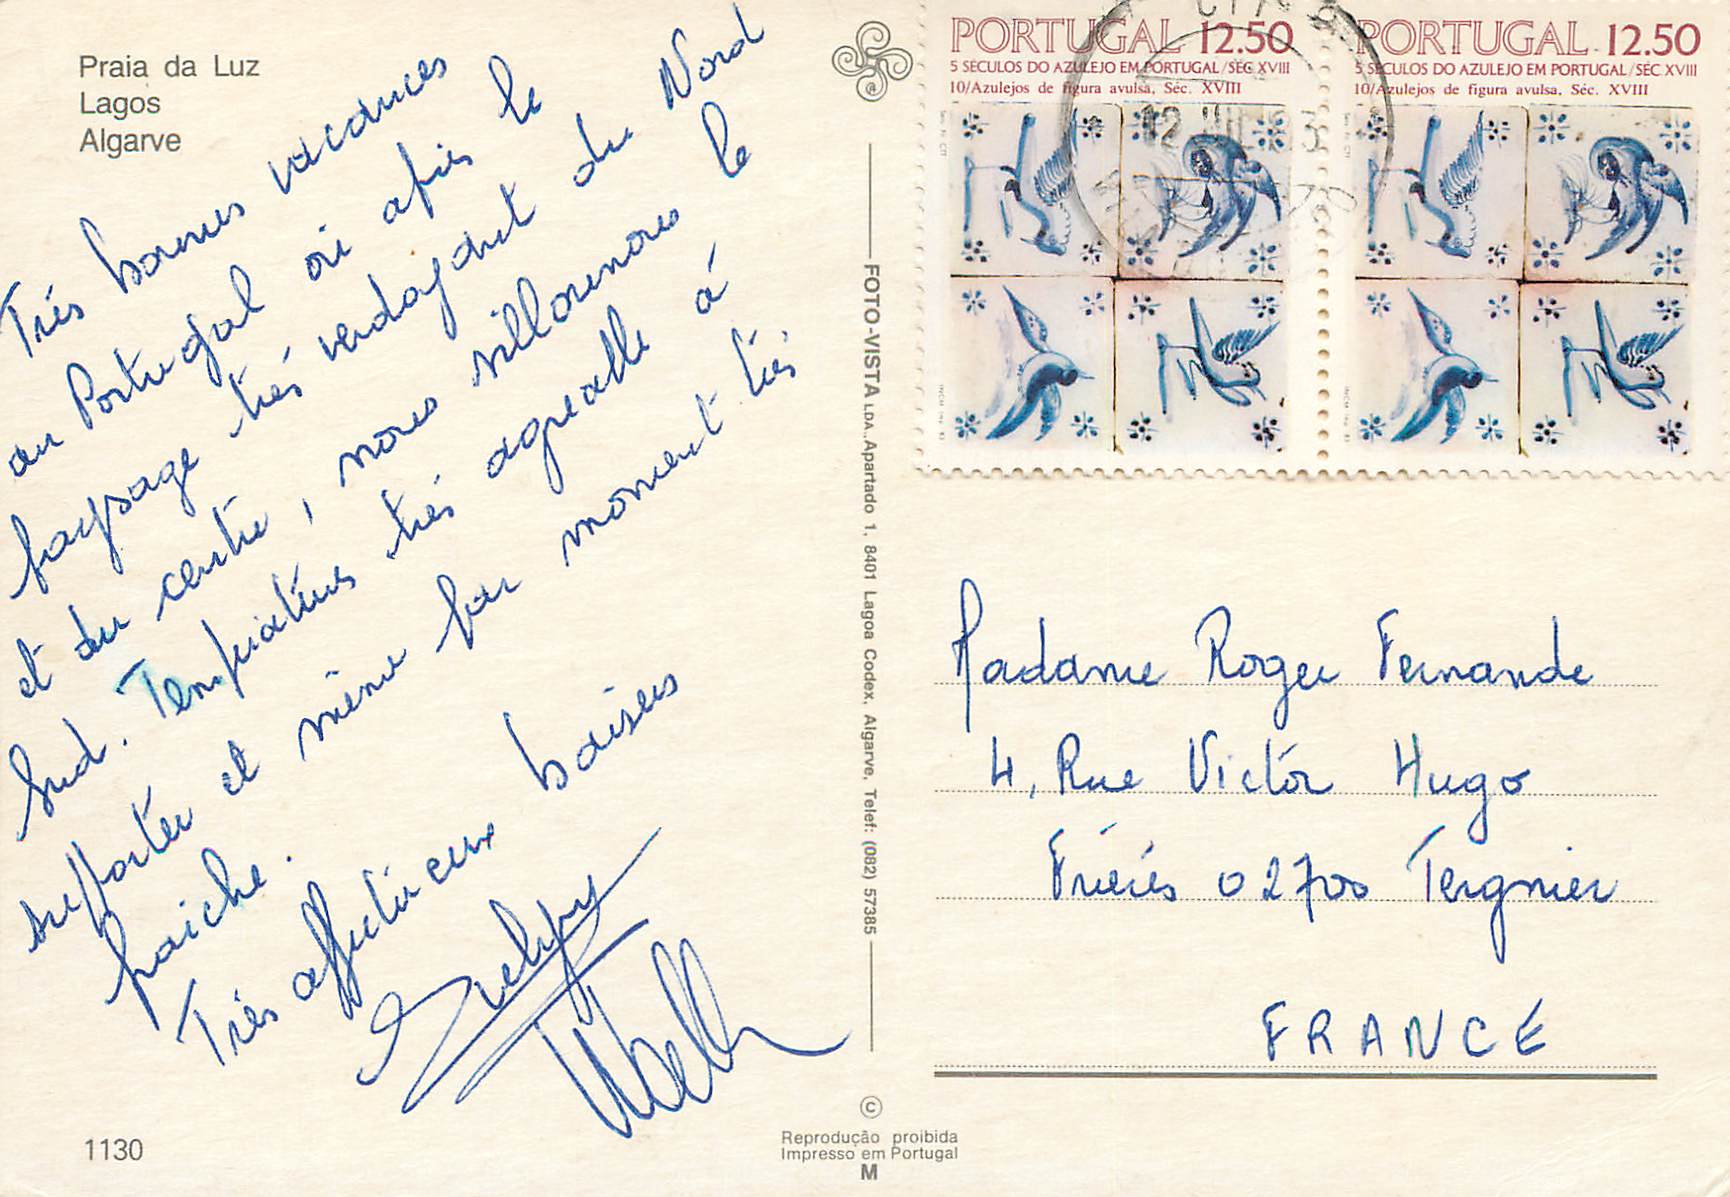 Praia da Luz
Lagos
Algarve
Très bonnes vacances
au Portugal où après le
paysage très verdoyant du Nord
et du centre, nous sillonnons le
Sud. Températures très agréable à
supporter et même par moment très
fraiche.
Très affectueux baisers
1130
FOTO-VISTA LDA., Apartado 1, 8401 Lagoa Codex, Algarve, Telef: (082) 57385
©
Reprodução proibida
Impresso em Portugal
M
PORTUGAL 12.50
5 SÉCULOS DO AZULEJO EM PORTUGAL/SÉC. XVIII
10/Azulejos de figura avulsa, Séc. XVIII
PORTUGAL 12.50
5 SÉCULOS DO AZULEJO EM PORTUGAL/SÉC. XVIII
10/Azulejos de figura avulsa, Séc. XVIII
Madame Roger Fernande
4, Rue Victor Hugo
Frières 02700 Tergnier
FRANCE